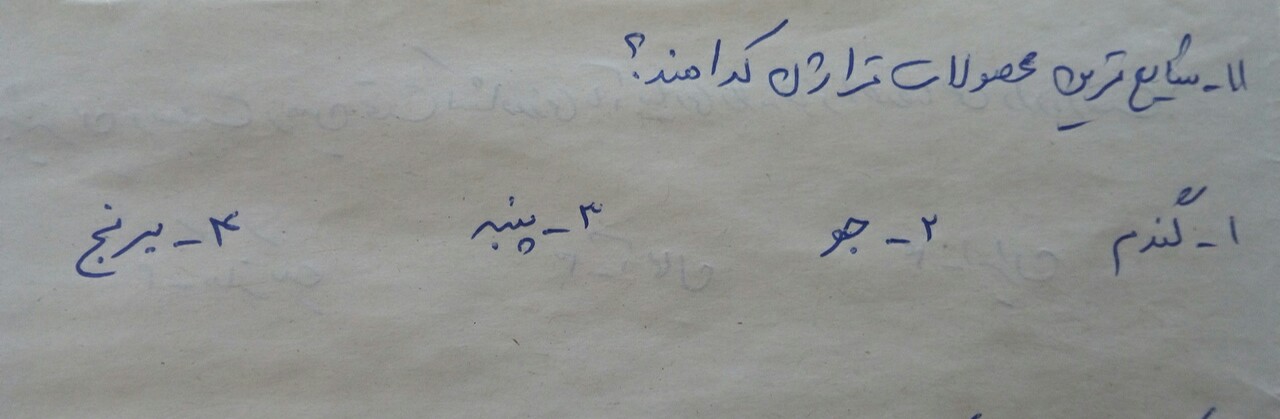 ۱۱- شایع ترین محصولات تراژن کدامند؟
۱- گندم ۲- جو ۳- پنبه ۴- برنج